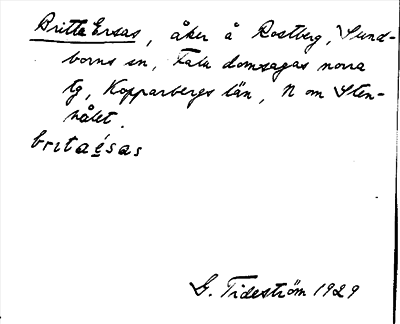 Britta Ersas, åker å Rostberg, Sund-
borns sn, Falu domsagas norra
tg, Kopparbergs län, N om Sten-
målet.
britaésas
G. Tideström 1929